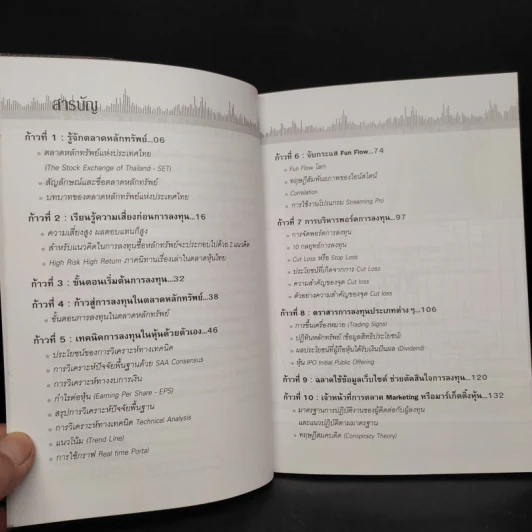 สารบัญ
ก้าวที่ 1 : รู้จักตลาดหลักทรัพย์...06
ตลาดหลักทรัพย์แห่งประเทศไทย
(The Stock Exchange of Thailand - SET)
สัญลักษณ์และชื่อตลาดหลักทรัพย์
บทบาทของตลาดหลักทรัพย์แห่งประเทศไทย
ก้าวที่ 2 : เรียนรู้ความเสี่ยงก่อนการลงทุน...16
ความเสี่ยงสูง ผลตอบแทนก็สูง
สำหรับแนวคิดในการลงทุนซื้อหลักทรัพย์จะประกอบไปด้วย 2 แนวคิด
High Risk High Return ภาคนิทานเรื่องเล่าในตลาดหุ้นไทย
ก้าวที่ 3 : ขั้นตอนเริ่มต้นการลงทุน...32
ก้าวที่ 4 : ก้าวสู่การลงทุนในตลาดหลักทรัพย์...38
ขั้นตอนการลงทุนในตลาดหลักทรัพย์
ก้าวที่ 5 : เทคนิคการลงทุนในหุ้นด้วยตัวเอง...46
ประโยชน์ของการวิเคราะห์ทางเทคนิค
การวิเคราะห์ปัจจัยพื้นฐานด้วย SAA Consensus
การวิเคราะห์ทางงบการเงิน
กำไรต่อหุ้น (Earning Per Share - EPS)
สรุปการวิเคราะห์ปัจจัยพื้นฐาน
การวิเคราะห์ทางเทคนิค Technical Analysis
แนวโน้ม (Trend Line)
การใช้กราฟ Real time Portal
ก้าวที่ 6 : จับกระแส Fun Flow...74
Fun Flow โลก
ทฤษฎีสัมพันธภาพของไอน์สไตน์
Correlation
การใช้งานโปรแกรม Streaming Pro
ก้าวที่ 7 การบริหารพอร์ตการลงทุน...97
การจัดพอร์ตการลงทุน
10 กลยุทธ์การลงทุน
Cut Loss หรือ Stop Loss
ประโยชน์ที่เกิดจากการ Cut Loss
ความสำคัญของจุด Cut loss
ตัวอย่างความสำคัญของจุด Cut loss
ก้าวที่ 8 : ตราสารการลงทุนประเภทต่าง ๆ...106
การขึ้นเครื่องหมาย (Trading Signs)
ปฏิทินหลักทรัพย์ (ข้อมูลสิทธิประโยชน์)
ผลประโยชน์ที่ผู้ถือหุ้นได้รับเงินปันผล (Dividend)
หุ้น IPO Initial Public Offering
ก้าวที่ 9 : ฉลาดใช้ข้อมูลเว็บไซต์ ช่วยตัดสินใจการลงทุน...120
ก้าวที่ 10 : เจ้าหน้าที่การตลาด Marketing หรือมาร์เก็ตติ้งหุ้น...132
มาตรฐานการปฏิบัติงานของผู้ติดต่อกับผู้ลงทุน
และแนวปฏิบัติตามมาตรฐาน
ทฤษฎีสมคบคิด (Conspiracy Theory)